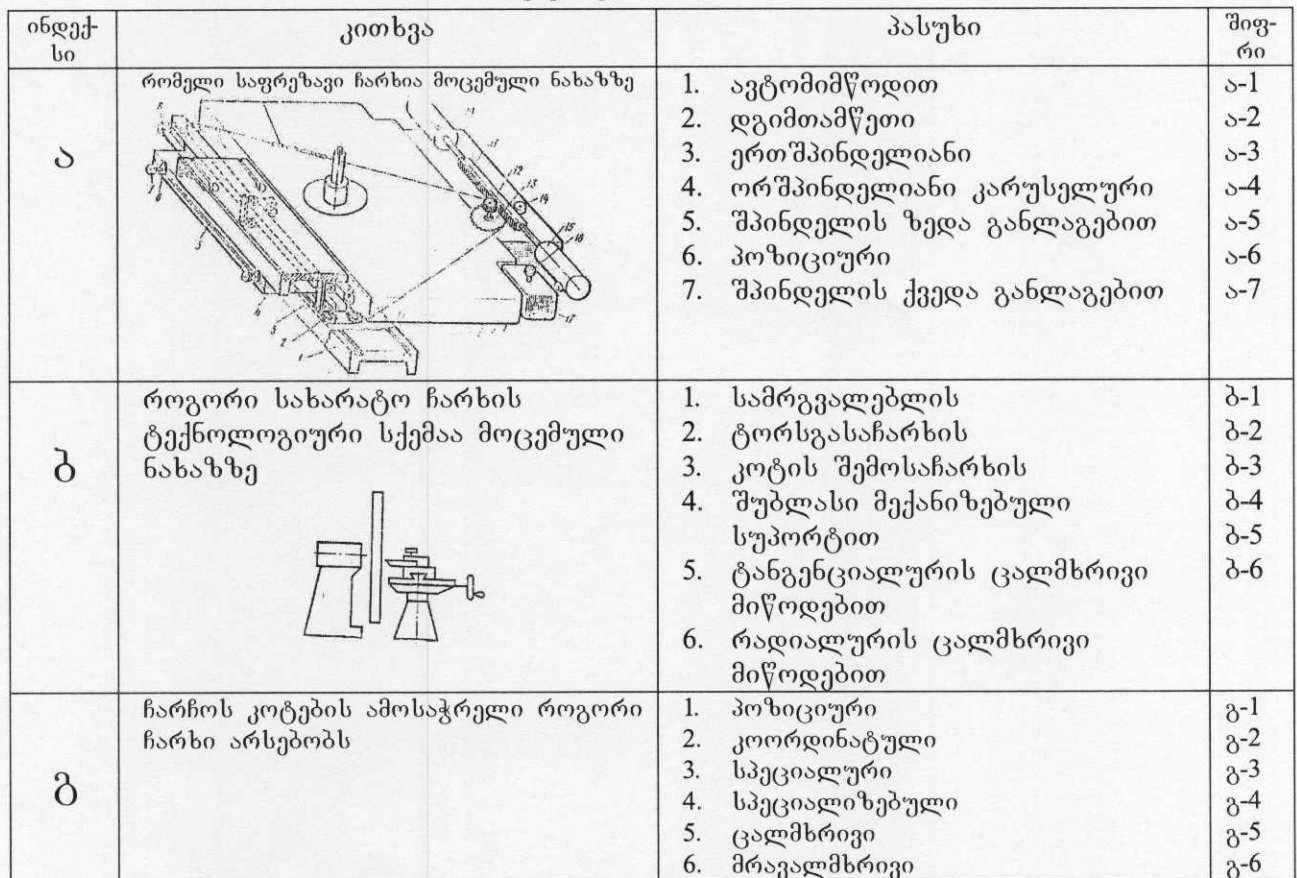 ინდექ-
სი
კითხვა
პასუხი
შიფ-
რი
ა
რომელი საფრეზავი ჩარხია მოცემული ნახაზზე
11
12
13
14
15
16
1. ავტომიმწოდით
2. დგიმთამწეთი
3. ერთშპინდელიანი
4. ორშპინდელიანი კარუსელური
5. შპინდელის ზედა განლაგებით
6. პოზიციური
7. შპინდელის ქვედა განლაგებით
ა-1
ა-2
ა-3
ა-4
ა-5
ა-6
ა-7
ბ
როგორი სახარატო ჩარხის
ტექნოლოგიური სქემაა მოცემული
ნახაზზე
1. სამრგვალებლის
2. ტორსგასაჩარხის
3. კოტის შემოსაჩარხის
4. შუბლასი მექანიზებული
სუპორტით
5. ტანგენციალურის ცალმხრივი
მიწოდებით
6. რადიალურის ცალმხრივი
მიწოდებით
ბ-1
ბ-2
ბ-3
ბ-4
ბ-5
ბ-6
გ
ჩარჩოს კოტების ამოსაჭრელი როგორი
ჩარხი არსებობს
1. პოზიციური
2. კოორდინატული
3. სპეციალური
4. სპეციალიზებული
5. ცალმხრივი
6. მრავალმხრივი
გ-1
გ-2
გ-3
გ-4
გ-5
გ-6